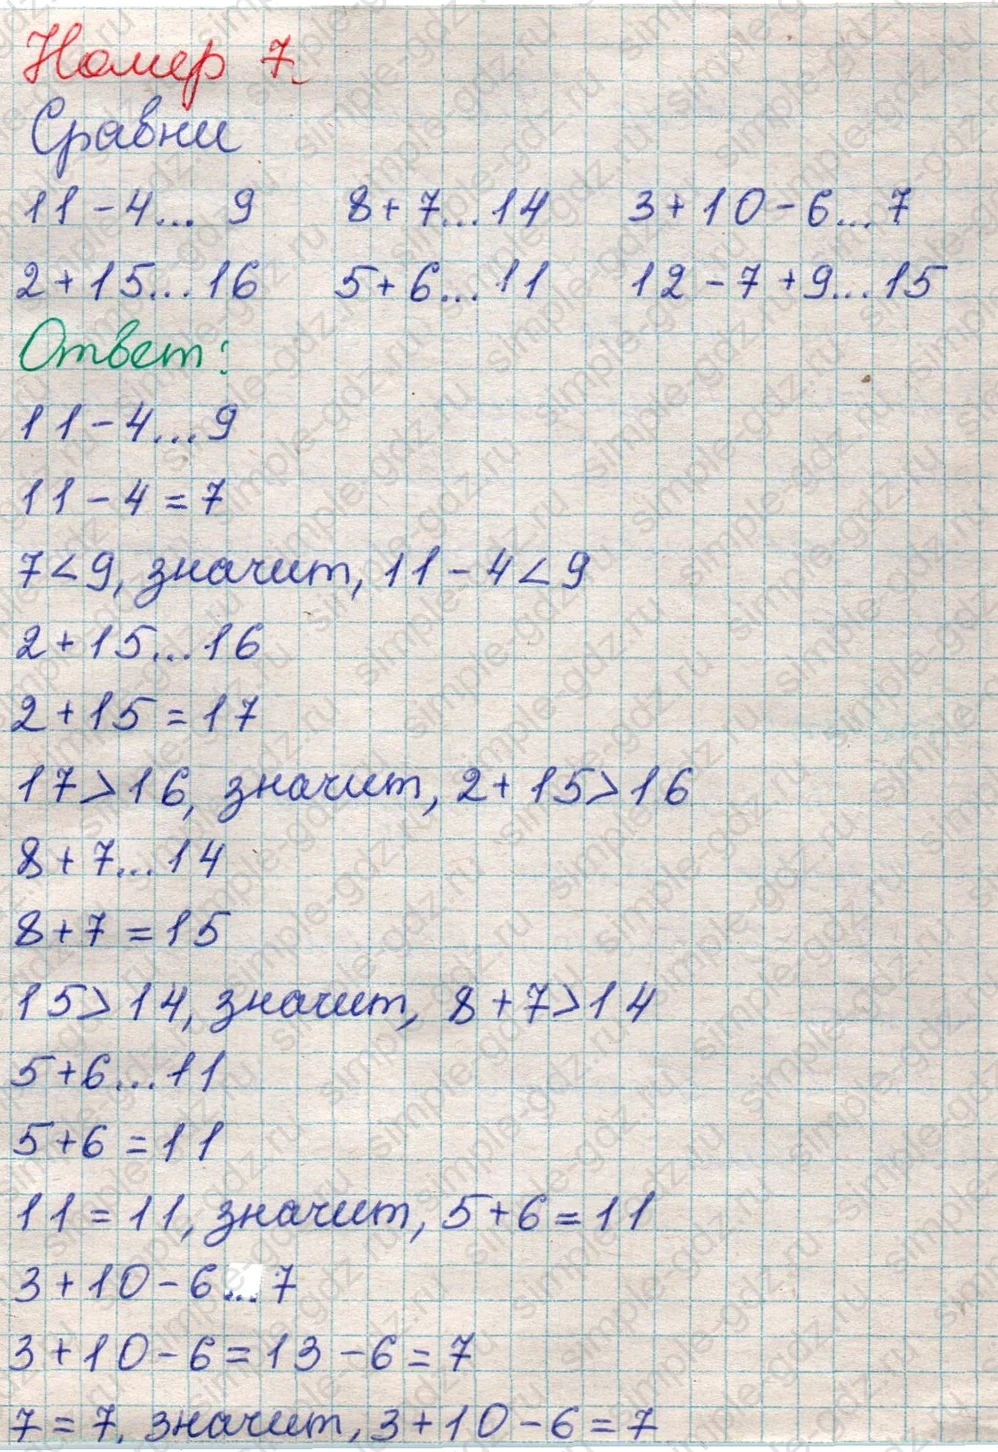 Номер 7.
Сравни
11-4... 9 8+7...14 3+10-6...7
2+15...16 5+6...11 12-7+9...15
Ответ:
11-4...9
11-4=7
7<9, значит, 11-4<9
2+15...16
2+15=17
17>16, значит, 2+15>16
8+7...14
8+7=15
15>14, значит, 8+7>14
5+6...11
5+6=11
11=11, значит, 5+6=11
3+10-6...7
3+10-6=13-6=7
7=7, значит, 3+10-6=7
simple-gdz.ru